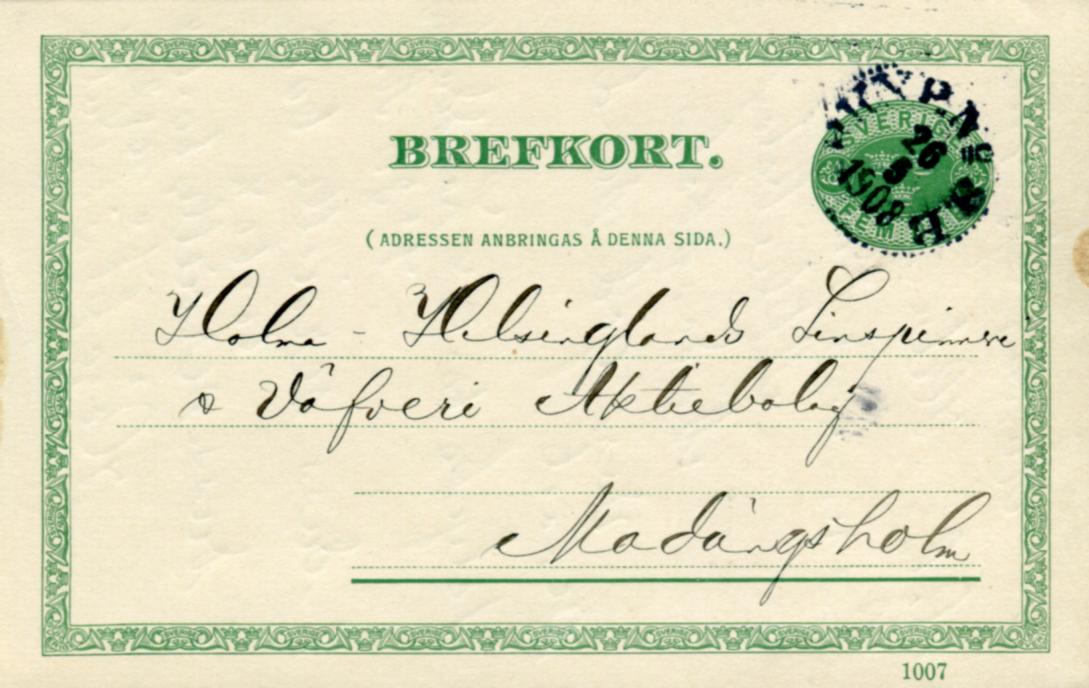 BREFKORT.
SVERIGE
FEM
26
1908
(ADRESSEN ANBRINGAS Å DENNA SIDA.)
Holma - Helsinglands Linspinneri
& Väfveri Aktiebolag
Madängsholm
1007